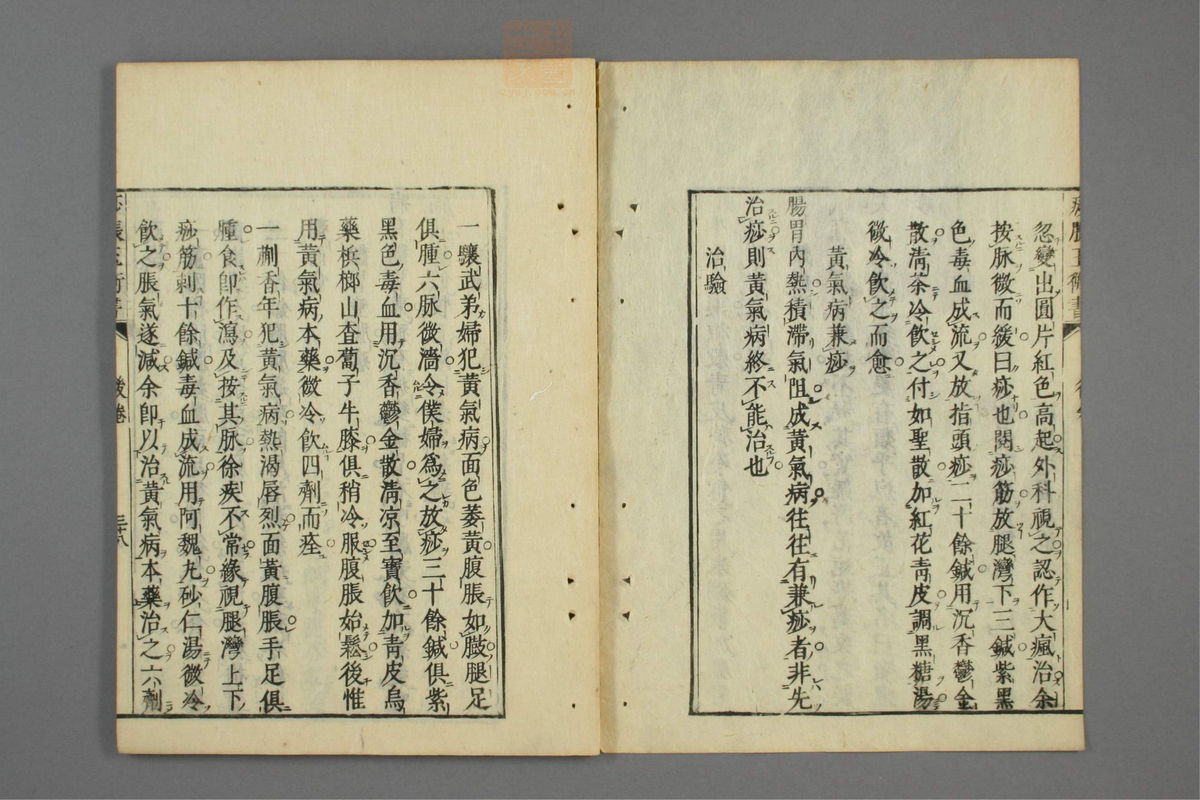 忽變出圓片紅色高起外科視之認作大瘋治余
按脉微而緩曰痧也閱痧筋放腿灣下三鍼紫黑
色毒血成流又放指頭痧二十餘鍼用沉香鬱金
散清茶冷飲之付如聖散加紅花青皮調黑糖湯
微冷飲之而愈
黃氣病兼痧
腸胃內熱積滯氣阻成黃氣病往往有兼痧者非先
治痧則黃氣病終不能治也
治驗
一驤武弟婦犯黃氣病面色萎黃腹脹如鼓腿足
俱腫六脉微濇令僕婦爲之放痧三十餘鍼俱紫
黑色毒血用沉香鬱金散清凉至寶飲加青皮烏
藥梹榔山査蔔子牛膝俱稍冷服腹脹始鬆後惟
用黃氣病本藥微冷飲四劑而痊
一蒯香年犯黃氣病熱渴唇烈面黃腹脹手足俱
腫食卽作瀉及按其脉徐疾不常緣視腿灣上下
痧筋剌十餘鍼毒血成流用阿魏丸砂仁湯微冷
飲之脹氣遂減余卽以治黃氣病本藥治之六劑
後卷
三十八